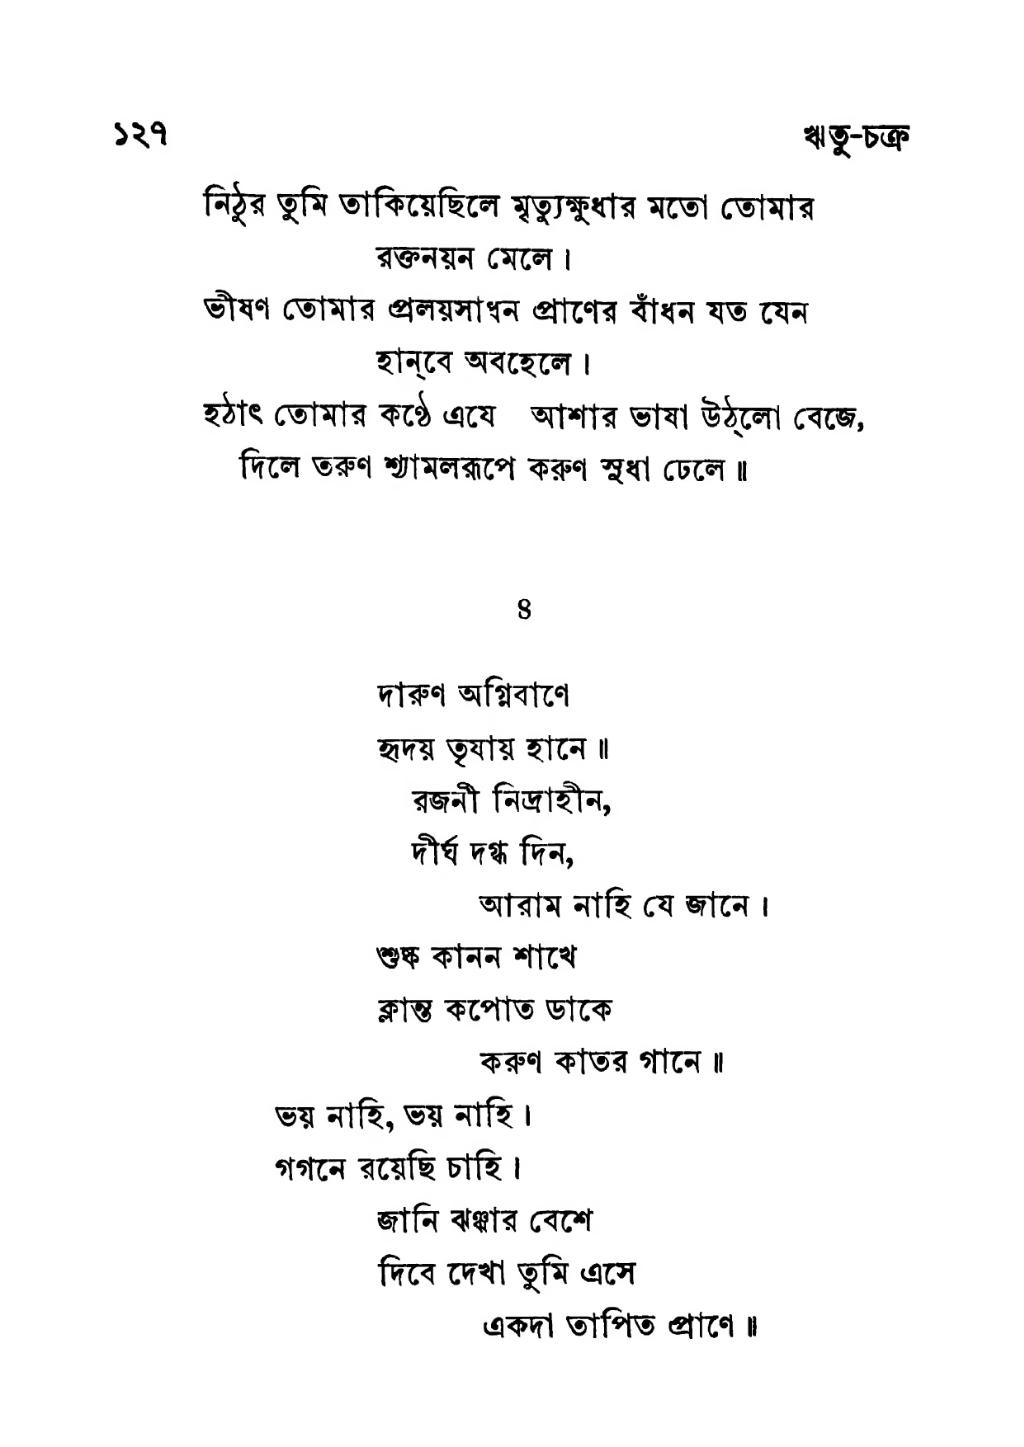 ১২৭ ঋতু-চক্র
নিঠুর তুমি তাকিয়েছিলে মৃত্যুক্ষুধার মতো তোমার
রক্তনয়ন মেলে।
ভীষণ তোমার প্রলয়সাধন প্রাণের বাঁধন যত যেন
হান্‌বে অবহেলে।
হঠাৎ তোমার কণ্ঠে এযে আশার ভাষা উঠ্‌লো বেজে,
দিলে তরুণ শ্যামলরূপে করুণ সুধা ঢেলে॥
৪
দারুণ অগ্নিবাণে
হৃদয় তৃষায় হানে॥
রজনী নিদ্রাহীন,
দীর্ঘ দগ্ধ দিন,
আরাম নাহি যে জানে।
শুষ্ক কানন শাখে
ক্লান্ত কপোত ডাকে
করুণ কাতর গানে॥
ভয় নাহি, ভয় নাহি।
গগনে রয়েছি চাহি।
জানি ঝঞ্ঝার বেশে
দিবে দেখা তুমি এসে
একদা তাপিত প্রাণে॥